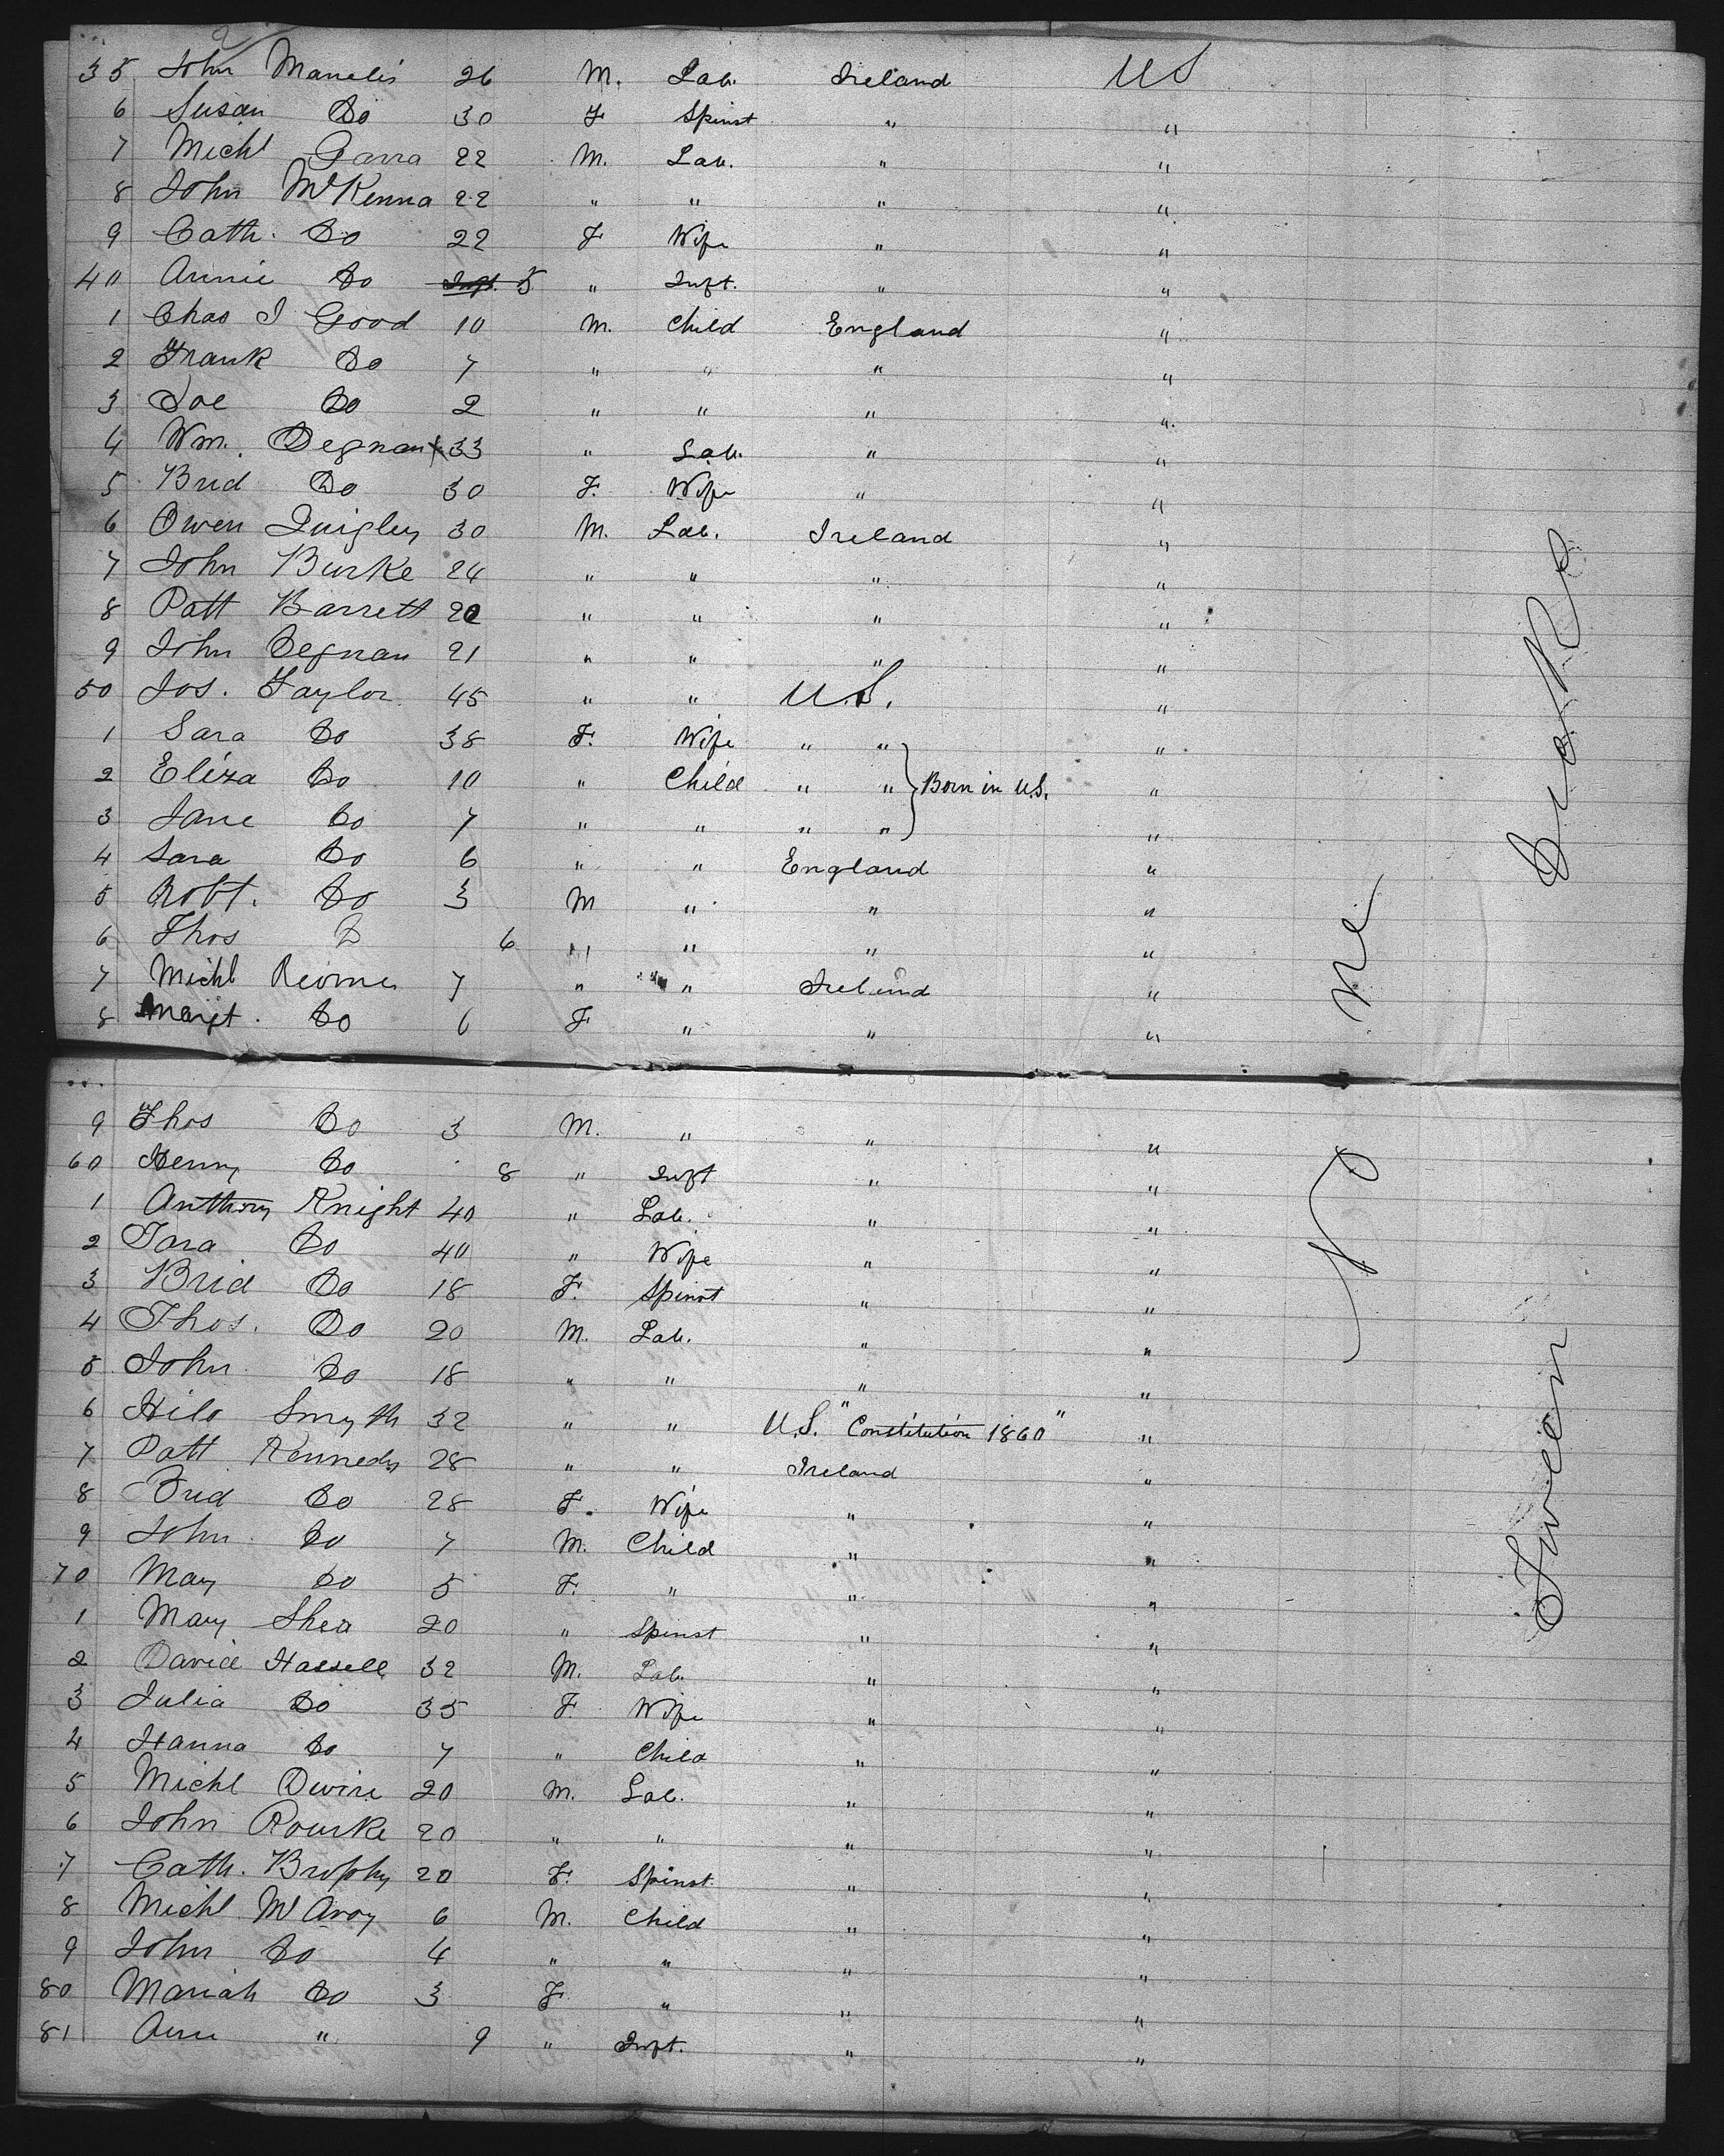 35 John Manelis 26 M. Lab. Ireland US
6 Susan Do 30 F Spinst " "
7 Michl Garra 22 M. Lab. " "
8 John McKenna 22 " " " "
9 Cath. Do 22 F Wife " "
40 Annie Do Inft. 5 " Inft. " "
1 Chas J Good 10 M. Child England "
2 Frank Do 7 " " " "
3 Joe Do 2 " " " "
4 Wm. Degnan 33 " Lab. " "
5 Brid Do 30 F. Wife " "
6 Owen Quigley 30 M. Lab. Ireland "
7 John Burke 24 " " " "
8 Patt Barrett 20 " " " "
9 John Degnan 21 " " " "
50 Jos. Taylor 45 " " U.S. "
1 Sara Do 38 F. Wife " " "
2 Eliza Do 10 " Child " " } Born in U.S. "
3 Jane Do 7 " " " " "
4 Sara Do 6 " " England "
5 Robt. Do 3 M " " "
6 Thos D 6 " " " "
7 Michl 7 " " Ireland "
8 Margt. Do 6 F " " "
9 Thos Do 3 M. " " "
60 Henry Do 8 " Inft " "
1 Anthony Knight 40 " Lab. " "
2 Sara Do 40 " Wife " "
3 Brid Do 18 F. Spinst " "
4 Thos. Do 20 M. Lab. " "
5 John Do 18 " " " "
6 Hilo Smyth 32 " " U.S. "Constitution 1860" "
7 Patt Kennedy 28 " " Ireland "
8 Brid Do 28 F. Wife " "
9 John Do 7 M. Child " "
70 May Do 5 F. " " "
1 Mary Shea 20 " Spinst " "
2 David Hassell 32 M. Lab. " "
3 Julia Do 35 F. Wife " "
4 Hanna Do 7 " Child " "
5 Michl Dwire 20 M. Lab. " "
6 John Rourke 20 " " " "
7 Cath. Brophy 20 F. Spinst. " "
8 Michl McAvoy 6 M. Child " "
9 John Do 4 " " " "
80 Mariah Do 3 F " " "
81 Ann " 9 " Inft. " "
Tween Decks